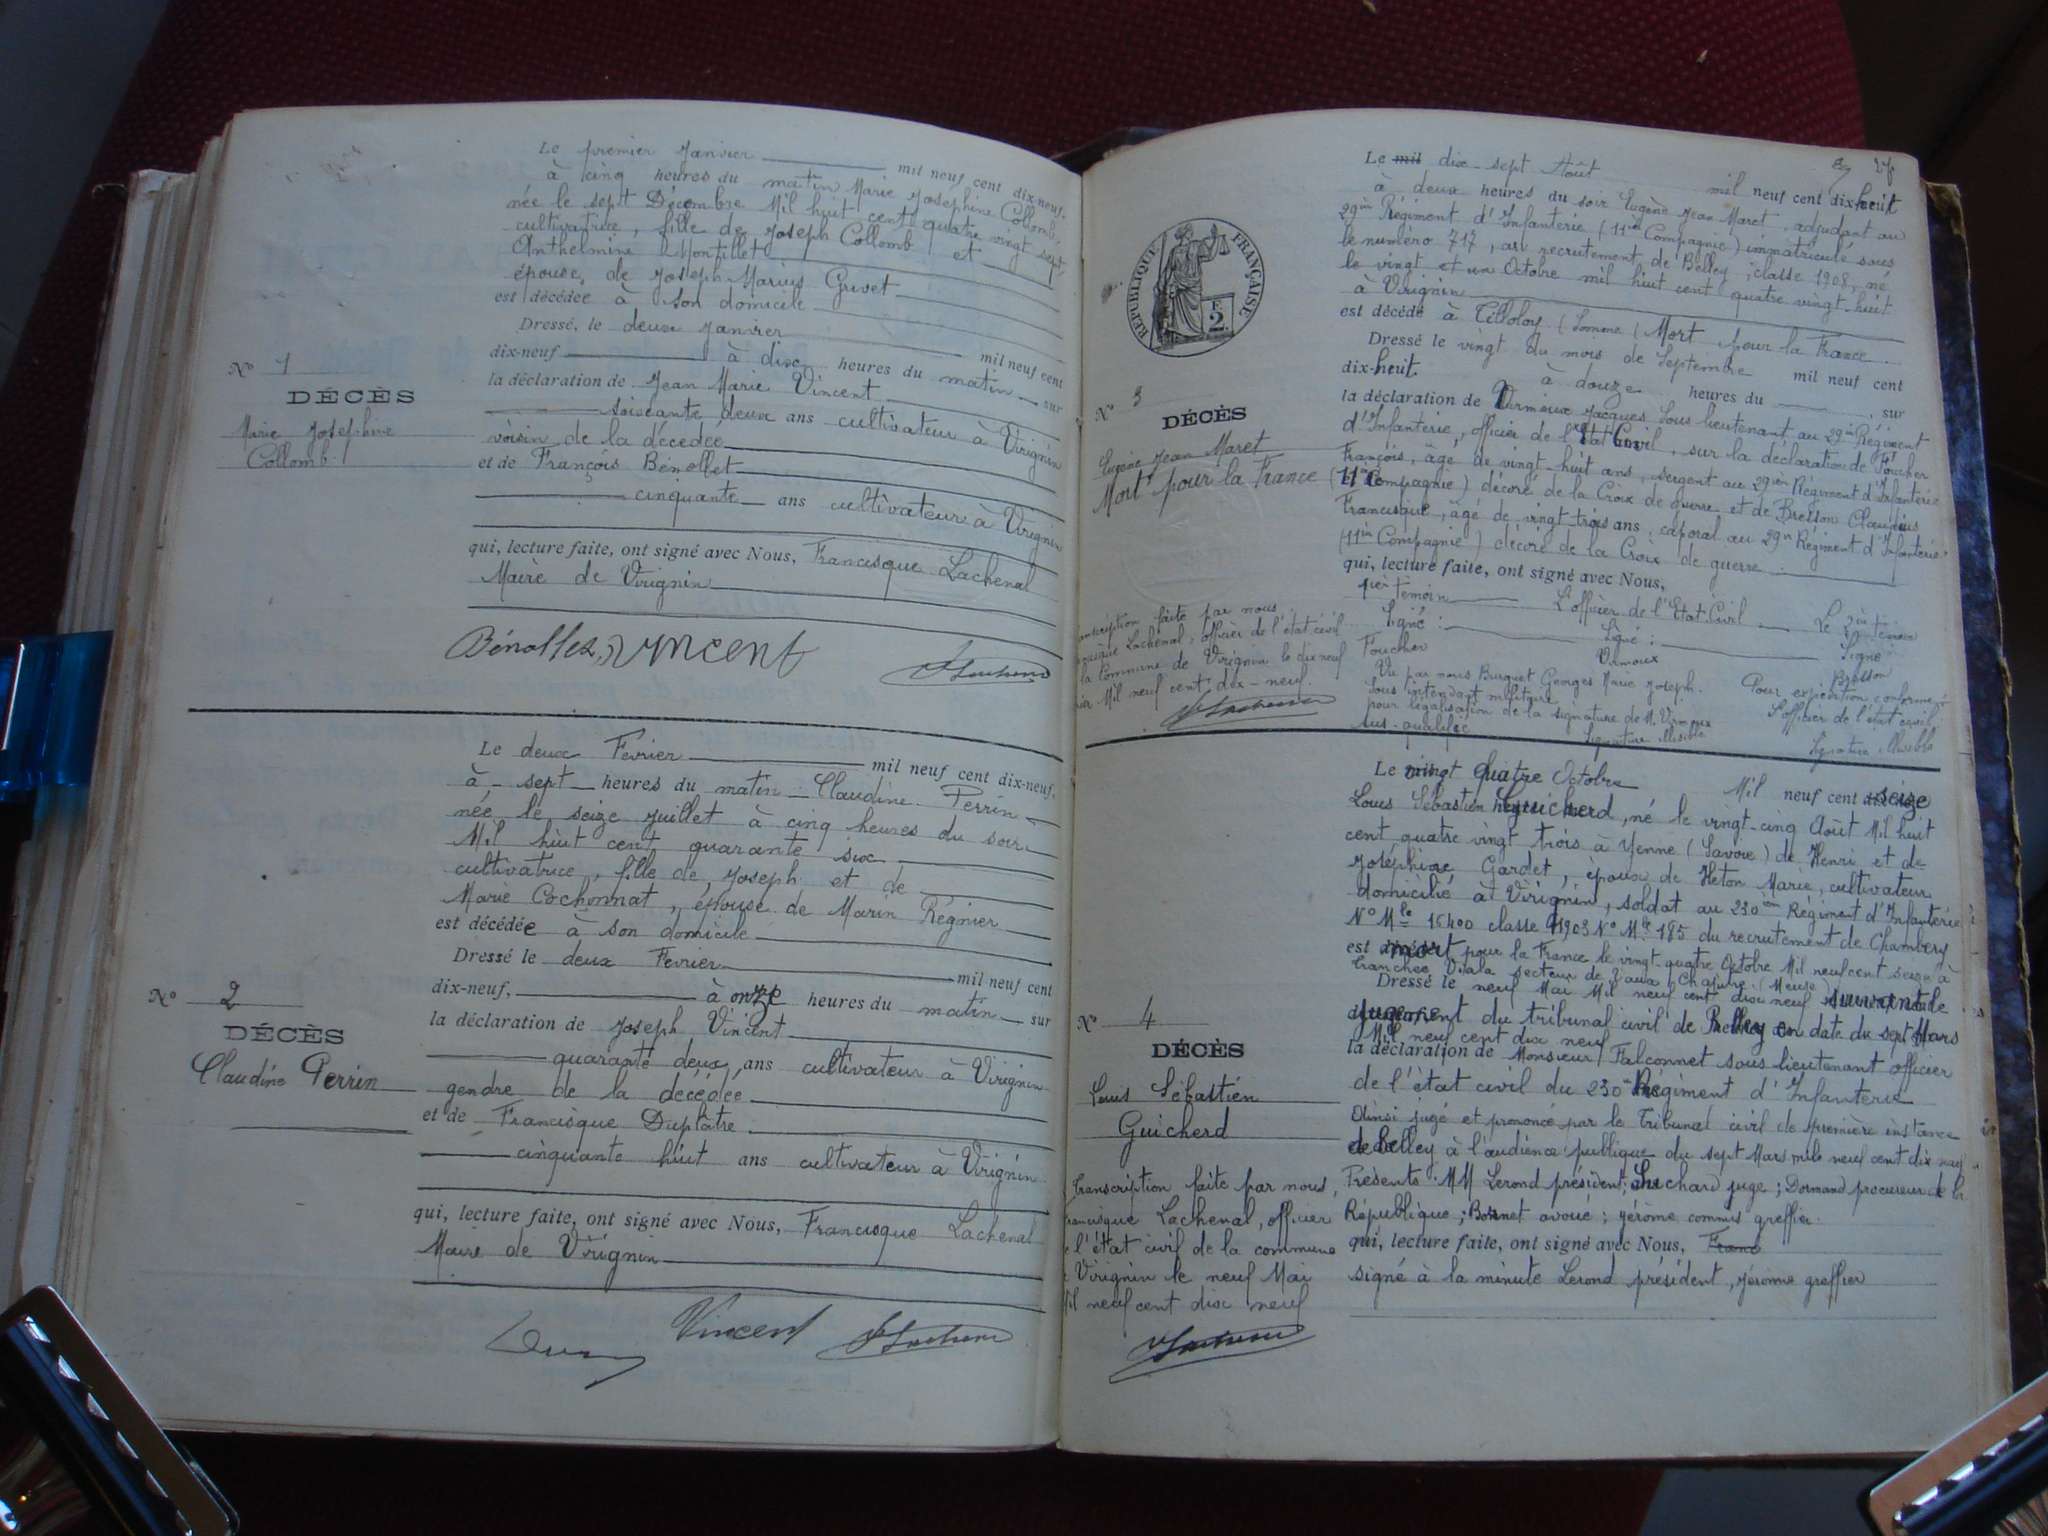 Le premier Janvier mil neuf cent dix-neuf,
à cinq heures du matin Marie Joséphine Collomb,
née le sept Décembre Mil huit cent quatre vingt sept,
cultivatrice, fille de Joseph Collomb et
Anthelmine Montillet
épouse de Joseph Marius Grivet
est décédée à son domicile
Dressé, le deux Janvier mil neuf cent
dix-neuf à dix heures du matin sur
la déclaration de Jean Marie Vincent
soixante deux ans cultivateur à Virignin
voisin de la décédée
et de François Bénollet
cinquante ans cultivateur à Virignin
qui, lecture faite, ont signé avec Nous, Francisque Lachenal
Maire de Virignin
N° 1
DÉCÈS
Marie Joséphine
Collomb
Bénollet Vincent Lachenal
Le deux Fevrier mil neuf cent dix-neuf,
à sept heures du matin Claudine Perrin
née le seize Juillet à cinq heures du soir
Mil huit cent quarante six
cultivatrice, fille de Joseph et de
Marie Cochonnat, épouse de Marin Régnier
est décédée à son domicile
Dressé le deux Fevrier mil neuf cent
dix-neuf, à onze heures du matin sur
la déclaration de Joseph Vincent
quarante deux ans cultivateur à Virignin
gendre de la décédée
et de Francisque Duplâtre
cinquante huit ans cultivateur à Virignin
qui, lecture faite, ont signé avec Nous, Francisque Lachenal
Maire de Virignin
N° 2
DÉCÈS
Claudine Perrin
Vincent Lachenal
27
RÉPUBLIQUE FRANÇAISE
F.
2
Le mil dix-sept Août mil neuf cent dix-huit
à deux heures du soir Eugène Jean Maret, adjudant au
29em Régiment d'Infanterie (11em Compagnie) immatriculé sous
le numéro 717, au recrutement de Belley, classe 1908, né
le vingt et un Octobre mil huit cent quatre vingt huit
à Virignin
est décédé à Tilloloy (Somme) Mort pour la France
Dressé le vingt du mois de Septembre mil neuf cent
dix-huit à douze heures du , sur
la déclaration de Vermeux Jacques Sous lieutenant au 29em Régiment
d'Infanterie, officier de l'Etat Civil, sur la déclaration de Foucher
François, âgé de vingt huit ans, sergent au 29em Régiment d'Infanterie
(11em Compagnie) décoré de la Croix de guerre et de Bresson Claudius
Francisque, âgé de vingt trois ans, caporal au 29em Régiment d'Infanterie
(11em Compagnie) décoré de la Croix de guerre
qui, lecture faite, ont signé avec Nous,
1er témoin L'officier de l'Etat-Civil Le 2em témoin
Signé : Signé : Signé :
Foucher Vermeux Bresson
Vu par nous Burquet Georges Marie Joseph Pour expédition conforme
Sous intendant militaire L'officier de l'état civil
pour légalisation de la signature de M. Vermeux
sus-qualifié Signature illisible Signature illisible
N° 3
DÉCÈS
Eugène Jean Maret
Mort pour la France
anscription faite par nous
ncisque Lachenal, officier de l'état civil
la Commune de Virignin le dix neuf
Mil neuf cent dix-neuf
Lachenal
Le vingt quatre Octobre Mil neuf cent seize
Louis Sébastien Guicherd, né le vingt-cinq Août Mil huit
cent quatre vingt trois à Yenne (Savoie) de Henri et de
Joséphine Gardet, époux de Héton Marie, cultivateur
domicilié à Virignin, soldat au 230em Régiment d'Infanterie
N° Mle 15400 classe 1903 N° Mle 185 du recrutement de Chambéry
est mort pour la France le vingt-quatre Octobre Mil neuf cent seize à
tranchée Viala secteur de Vaux Chapitre (Meuse)
Dressé le neuf Mai Mil neuf cent dix neuf suivant le
jugement du tribunal civil de Belley en date du sept Mars
Mil neuf cent dix neuf
la déclaration de Monsieur Falconnet sous lieutenant officier
de l'état civil du 230em Régiment d'Infanterie
Ainsi jugé et prononcé par le Tribunal civil de première instance
de Belley à l'audience publique du sept Mars mile neuf cent dix neuf
Présents MM Lerond président; Suchard juge; Dormand procureur de la
République; Bonnet avoué; Jérôme commis greffier.
qui, lecture faite, ont signé avec Nous, Franc
signé à la minute Lerond président, Jérôme greffier
N° 4
DÉCÈS
Louis Sébastien
Guicherd
Transcription faite par nous,
Francisque Lachenal, officier
de l'état civil de la commune
Virignin le neuf Mai
Mil neuf cent dix neuf
Lachenal